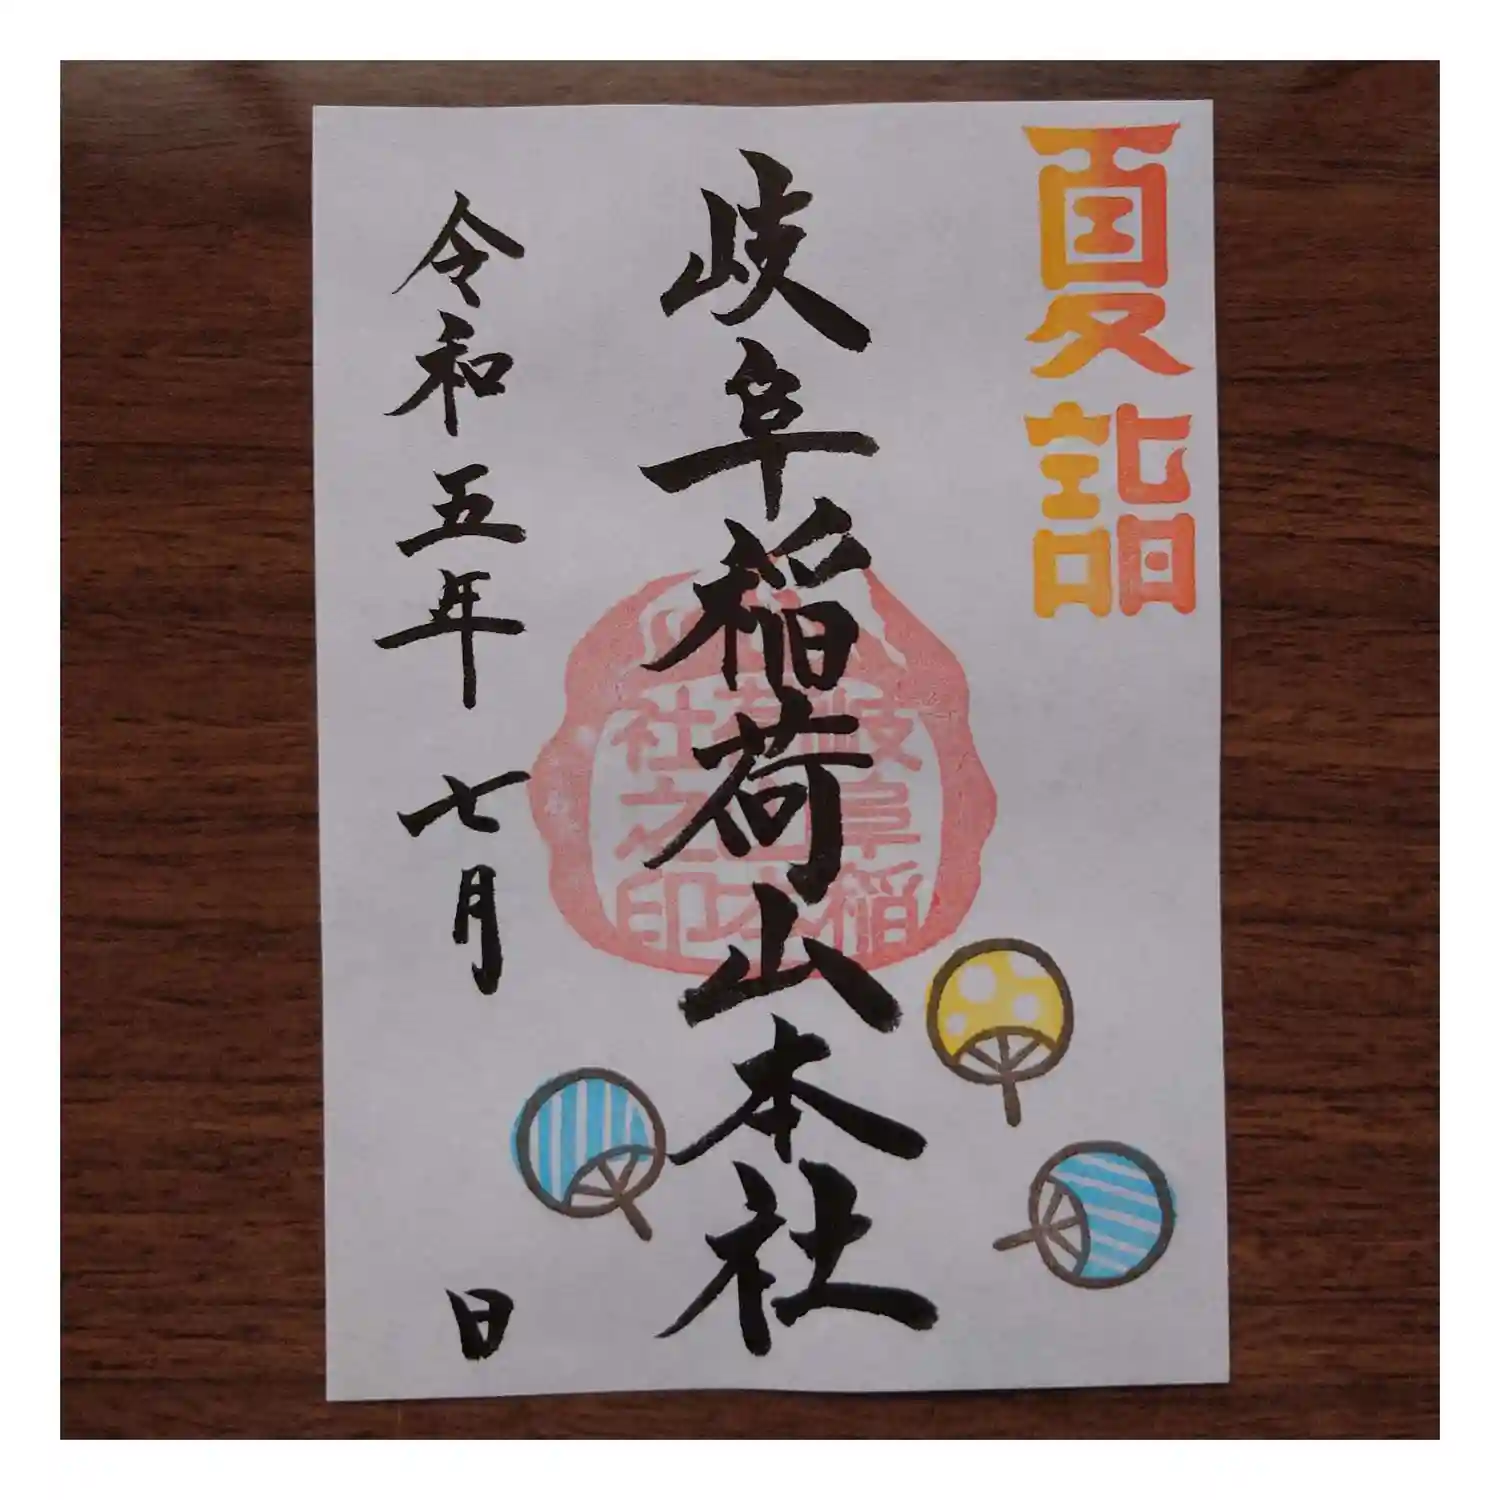 夏詣
岐阜稲荷山本社
岐阜稲
荷山本
社之印
令和五年 七月 日